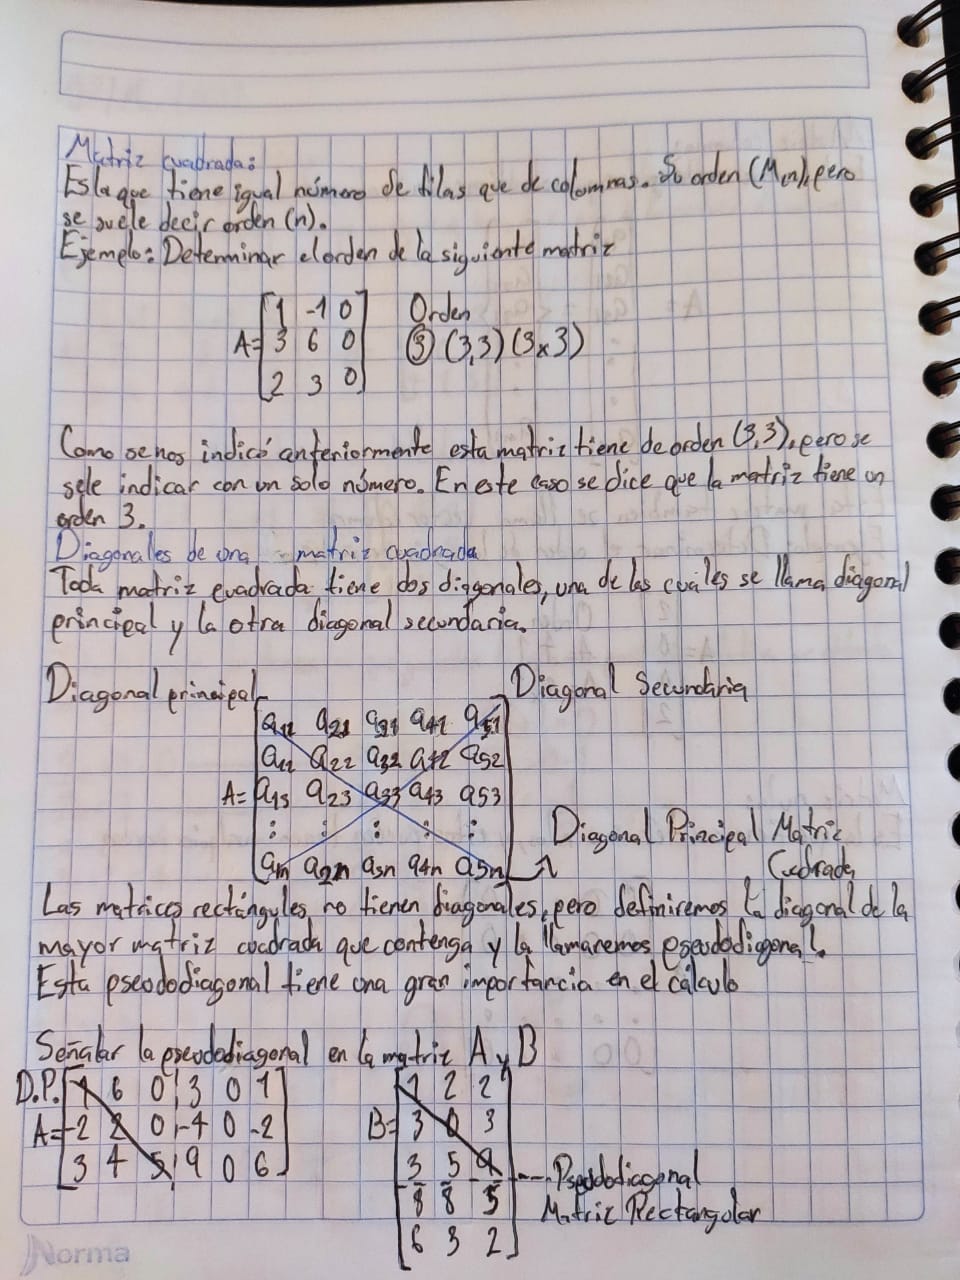 Matriz cuadrada:
Es la que tiene igual número de filas que de columnas. Su orden (M,n), pero
se suele decir orden (n).
Ejemplo: Determinar el orden de la siguiente matriz
[1 -1 0] Orden
A= [3 6 0] ③ (3,3) (3x3)
[2 3 0]
Como se nos indicó anteriormente esta matriz tiene de orden (3,3), pero se
sele indicar con un solo número. En este caso se dice que la matriz tiene un
orden 3.
Diagonales de una matriz cuadrada
Toda matriz cuadrada tiene dos diagonales, una de las cuales se llama diagonal
principal y la otra diagonal secundaria.
Diagonal principal Diagonal Secundaria
a11 a21 a31 a41 a51
a12 a22 a32 a42 a52
A= a13 a23 a33 a43 a53
: : : : :
a1n a2n a3n a4n a5n
Diagonal Principal Matriz
Cudrada
Las matrices rectángules no tienen diagonales, pero definiremos la diagonal de la
mayor matriz cuadrada que contenga y la llamaremos pseudodigonal.
Esta pseudodiagonal tiene una gran importancia en el cálculo
Señalar la pseudodiagonal en la matriz A y B
D.P. [1 6 0 3 0 1]
A= [-2 2 0 -4 0 -2]
[3 4 5 9 0 6]
[1 2 2]
B= [3 0 3]
[3 5 9] --- Pseudodiagonal
[-8 8 -5] Matriz Rectangular
[6 3 2]
Norma